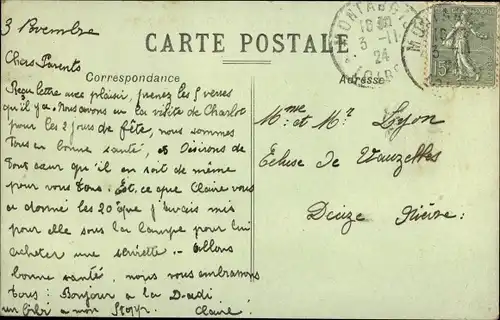 3 Novembre
CARTE POSTALE
MONTARGIS
18
3 -11
24
LOIRET
15
Chers Parents
Correspondance
Adresse
Reçu lettre avec plaisir, prenez les verses
qu'il y a. Nous avons eu la visite de Charlot
pour les 2 jours de fête, nous sommes
tous en bonne santé, et désirons de
tout cœur qu'il en soit de même
pour vous tous. Est ce que Claire vous
a donné les 20 que j'avais mis
pour elle sous la lampe pour lui
acheter une serviette. allons
bonne santé, nous vous embrassons
tous. Bonjour a la Dadi
un bibi a mon Claire
Mme et Mr Lyon
Ecluse de Vauzelles
Decize Nièvre